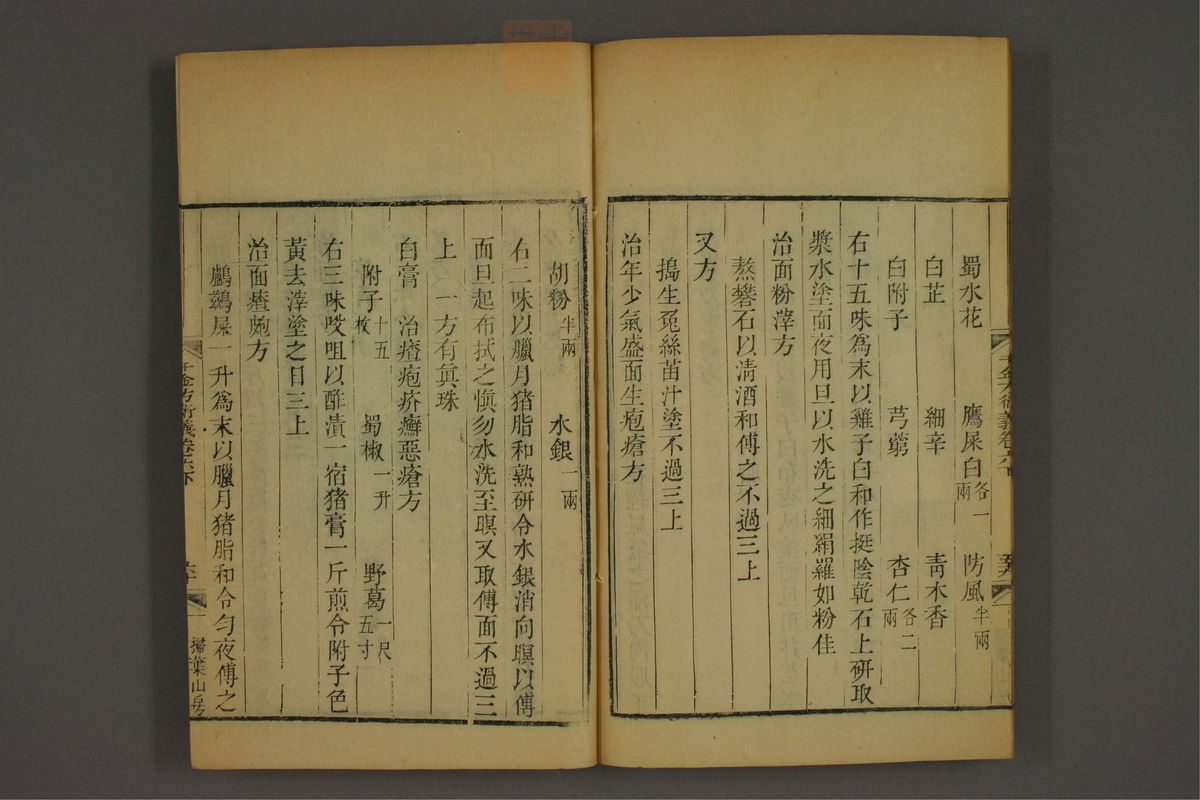 蜀水花　鷹屎白各一兩　防風半兩
白芷　細辛　青木香
白附子　芎藭　杏仁各二兩
右十五味為末以雞子白和作挺陰乾石上研取
漿水塗面夜用旦以水洗之細絹羅如粉佳
治面粉滓方
熬礬石以清酒和傅之不過三上
又方
搗生菟絲苗汁塗不過三上
治年少氣盛面生皰瘡方
胡粉半兩　水銀一兩
右二味以臘月猪脂和熟研令水銀消向暝以傅
面旦起布拭之慎勿水洗至暝又取傅面不過三
上　一方有真珠
白膏　治瘡皰疥癬惡瘡方
附子十五枚　蜀椒一升　野葛一尺五寸
右三味㕮咀以酢漬一宿猪膏一斤煎令附子色
黃去滓塗之日三上
治面皻皰方
鸕鷀屎一升為末以臘月猪脂和令勻夜傅之
千金方衍義卷六下
掃葉山房